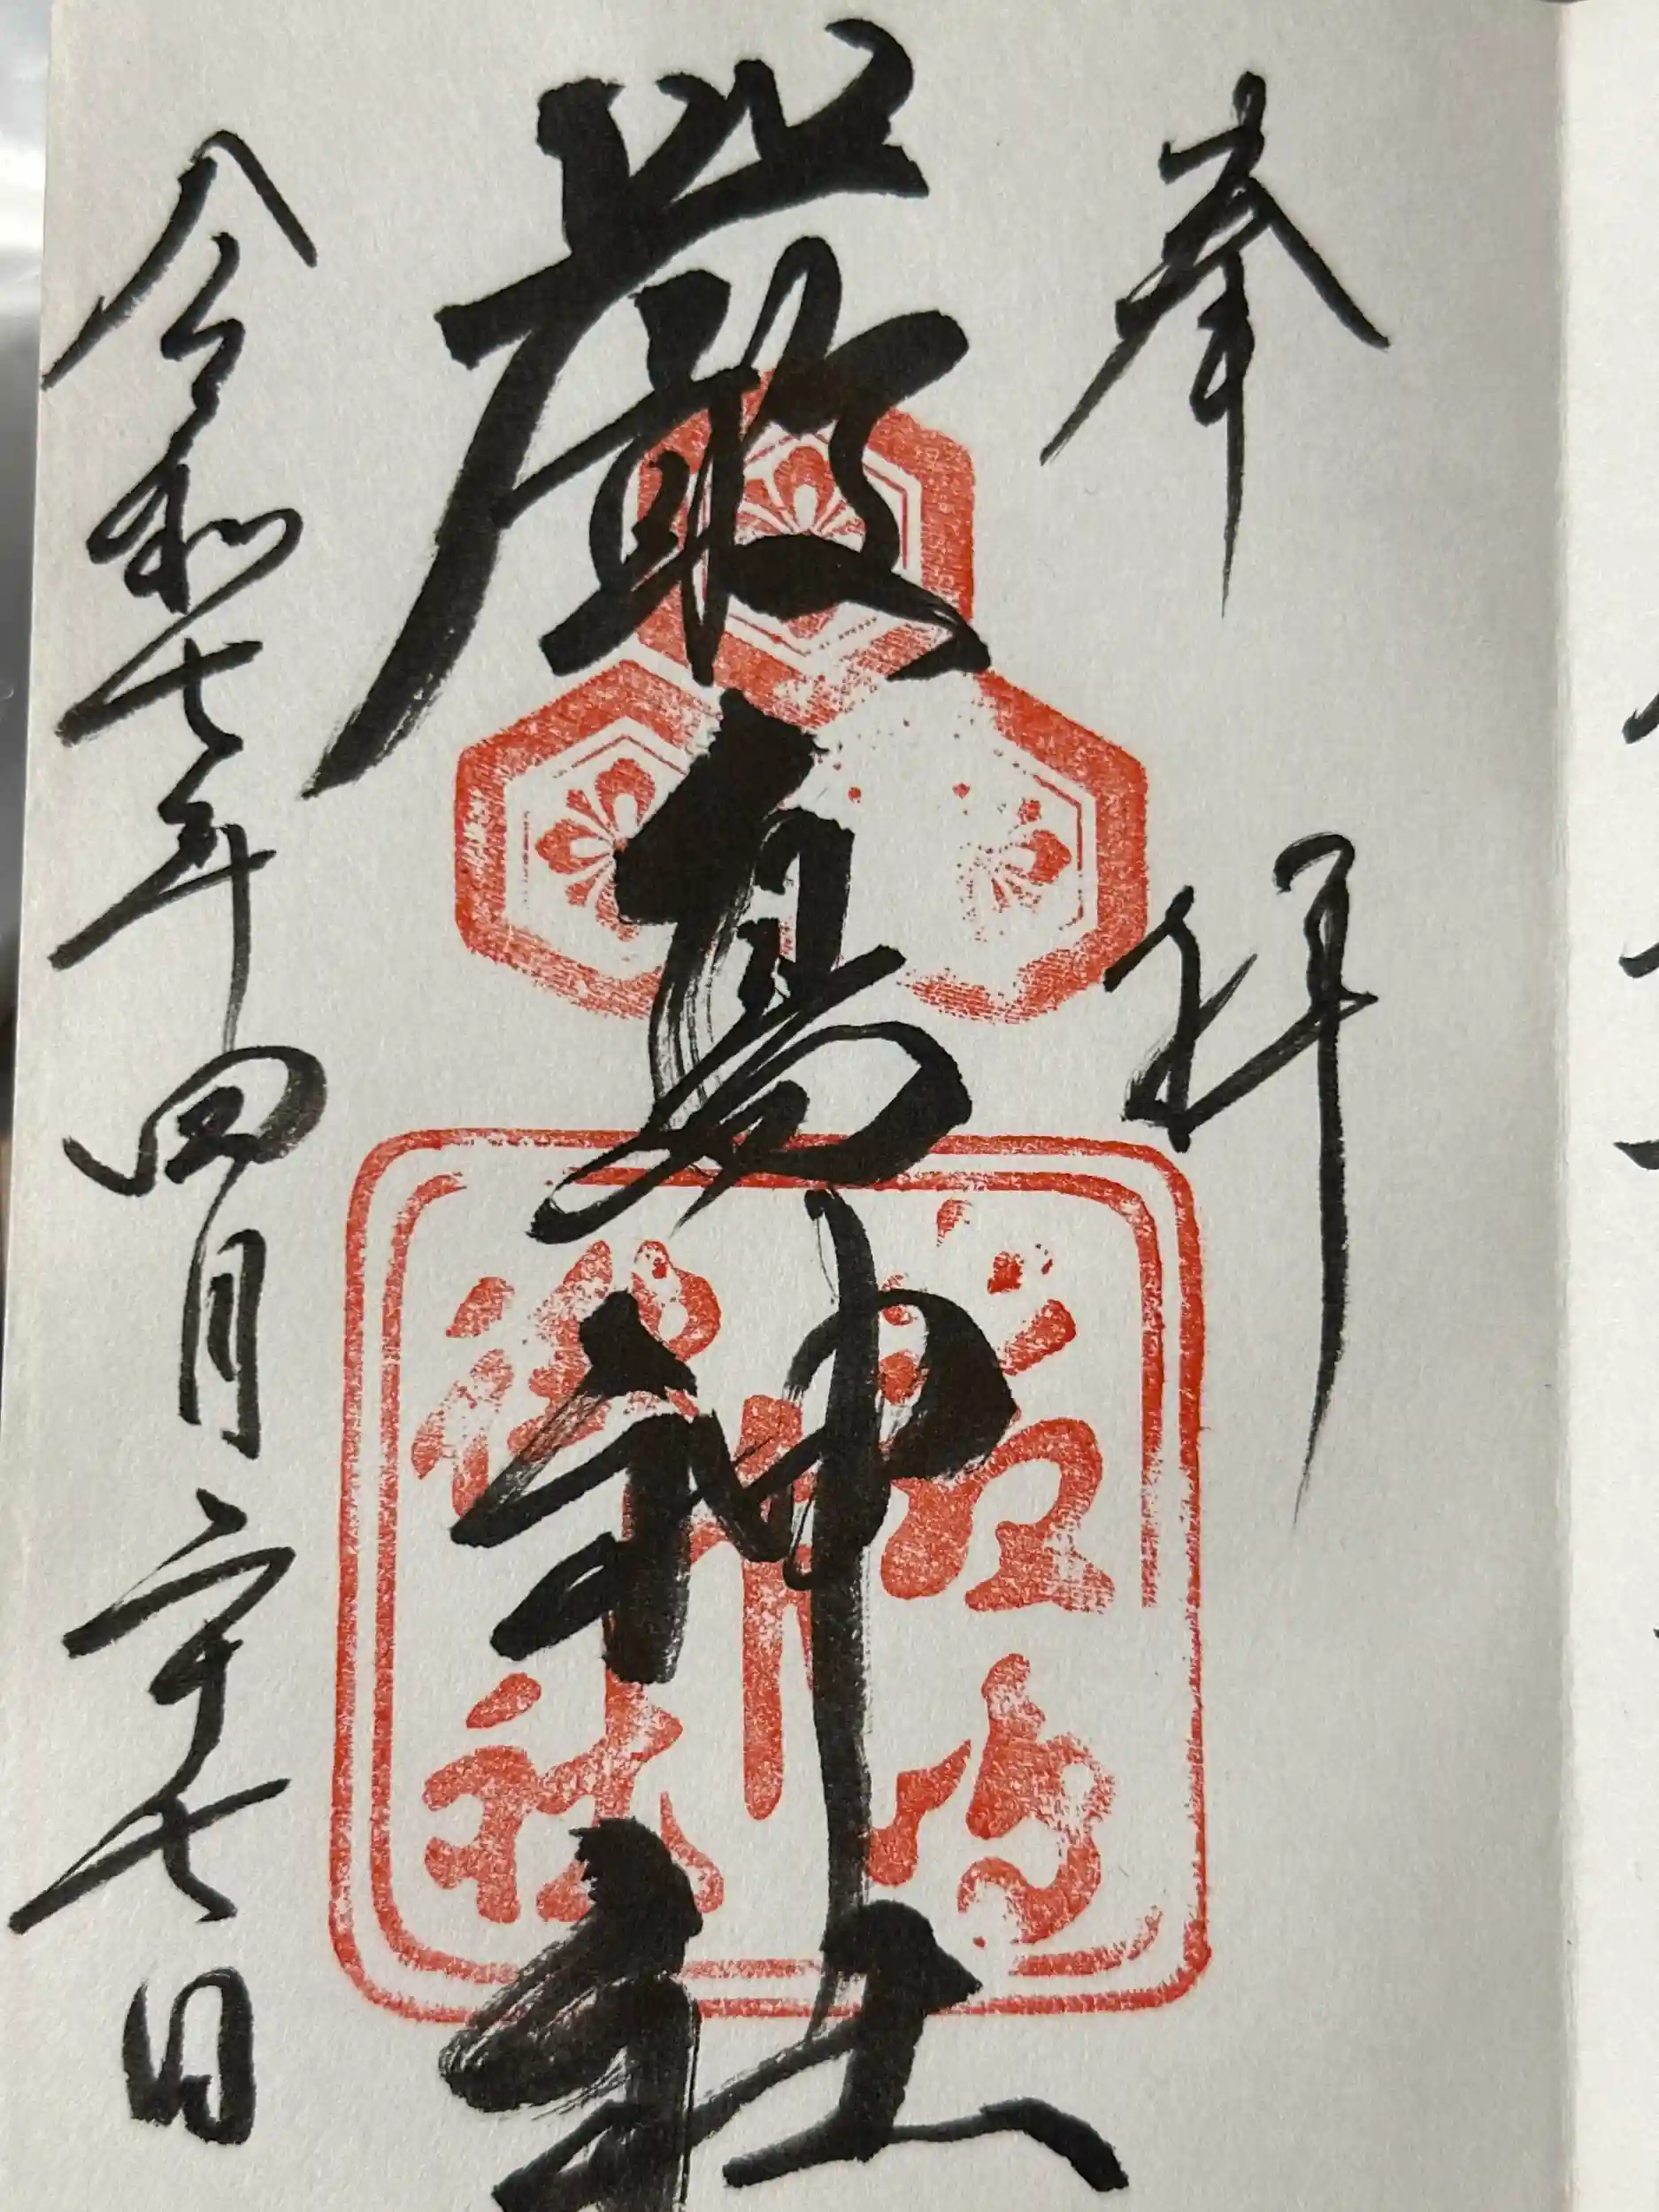 奉拝
厳島神社
嚴島神社
令和七年四月二十七日